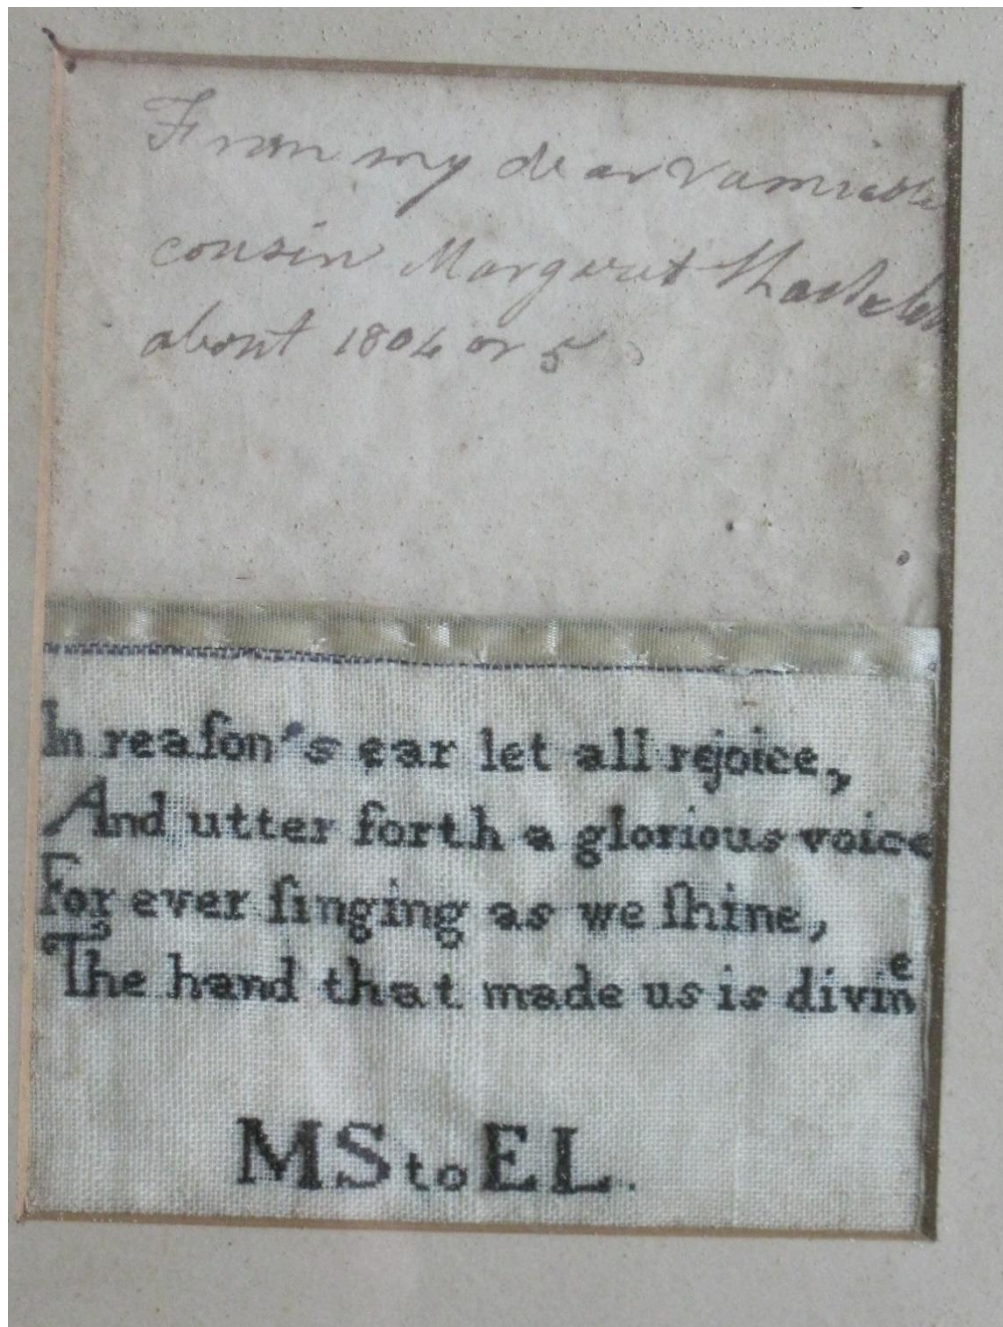 From my dear & amiable
cousin Margaret
about 1804 or 5
In reaſon's ear let all rejoice,
And utter forth a glorious voice
For ever ſinging as we ſhine,
The hand that made us is divine
MS to EL.